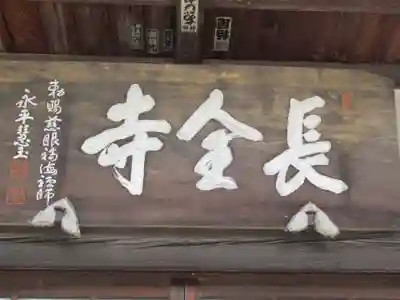 長全寺
勅賜慈眼福海禅師
永平慧玉